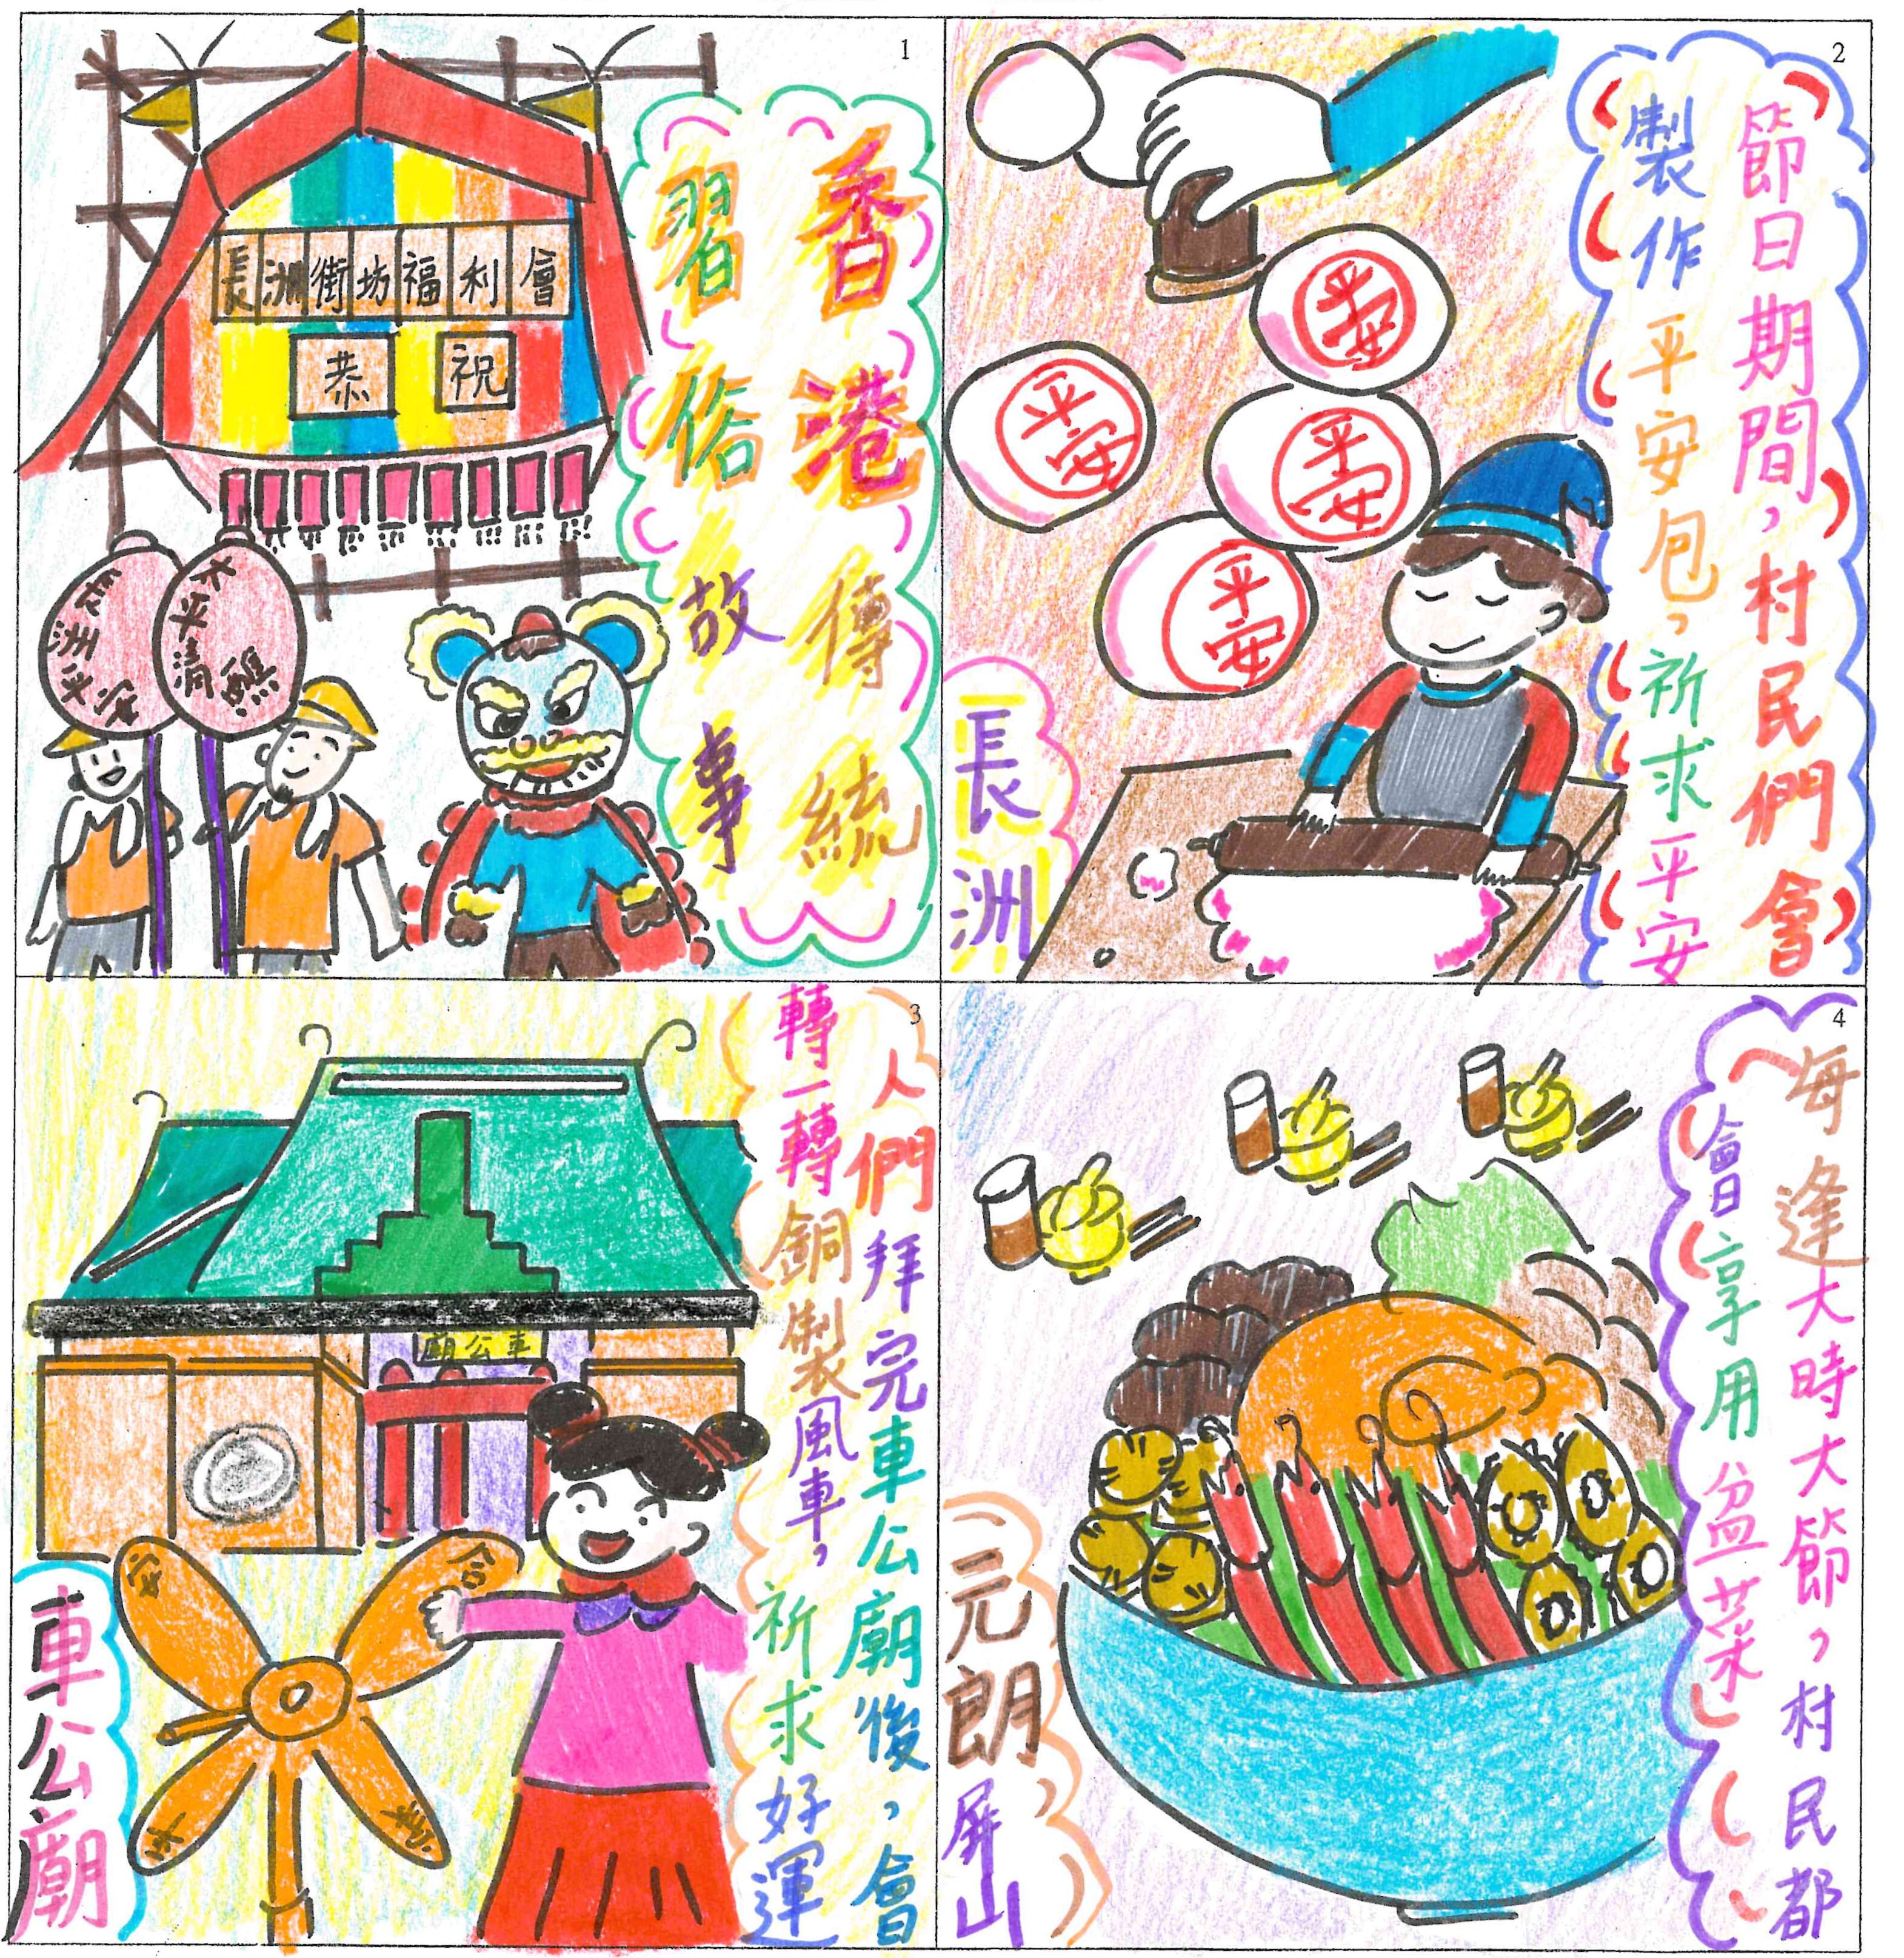 1
香港傳統
習俗故事
長洲街坊福利會
恭祝
太平清醮
2
節日期間，村民們會
製作平安包，祈求平安
平安
平安
平安
平安
長洲
3
人們拜完車公廟後，會
轉一轉銅製風車，祈求好運
車公廟
合
安
車公廟
4
每逢大時大節，村民都
會享用盆菜
元朗，屏山